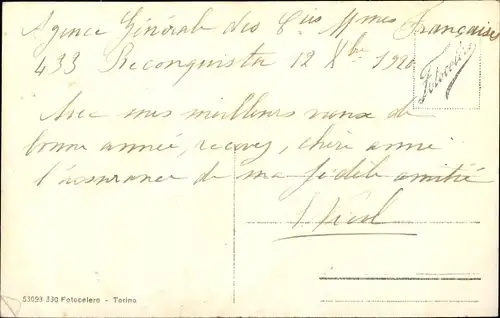 Agence Générale des Cies Mmes Françaises
433 Reconquista 12 Xbre 1920
Avec mes meilleurs vœux de
bonne année, recevez, chère amie
l'assurance de ma fidèle amitié
53093 330 Fotocelere - Torino